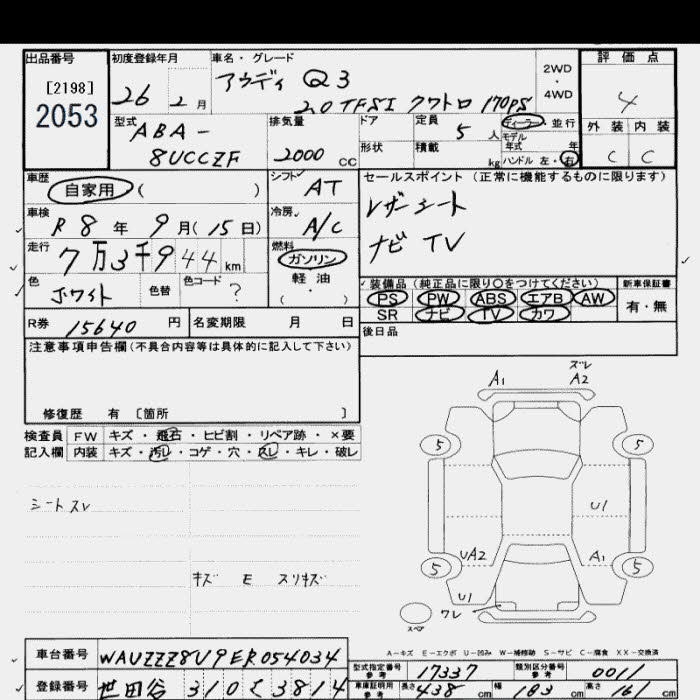 出品番号 初度登録年月 車名・グレード 評価点
[2198]
2053
アウディ Q3
26 2月 2.0 TFSI クワトロ 170PS
2WD
・
4WD
4
型式 排気量 ドア 定員 5 人 ディーラー・並行 外装 内装
ABA-
8UCCZF
2000 CC 形状 積載 kg モデル年式 年 ハンドル 左・右 C C
車歴 自家用 ( ) シフト AT セールスポイント (正常に機能するものに限ります)
レザーシート
車検 R8年 9月(15日) 冷房 A/C
ナビ TV
走行 7万3千944 km 燃料 ガソリン
軽油
( ・ )
色 ホワイト 色替 色コード ?
装備品 (純正品に限り○をつけてください) 新車保証書
PS PW ABS エアB AW 有・無
SR ナビ TV カワ
R券 15640 円 名変期限 月 日 後日品
注意事項申告欄(不具合内容等は具体的に記入して下さい)
修復歴 有 〔箇所 〕
検査員 FW キズ・飛石・ヒビ割・リペア跡・×要
記入欄 内装 キズ・汚レ・コゲ・穴・スレ・キレ・破レ
シートスレ
キズ E スリキズ
A1 ズレ
A2
5 5
U1
UA2 A1
5 5
U1
ワレ
スペア
A-キズ E-エクボ U-凹み W-補修跡 S-サビ C-腐食 XX-交換済
車台番号 WAUZZZ8U9ER054034
型式指定番号 参考 17337 類別区分番号 参考 0011
登録番号 世田谷 310 そ 3814
車庫証明用 参考 長さ 438 cm 幅 183 cm 高さ 161 cm